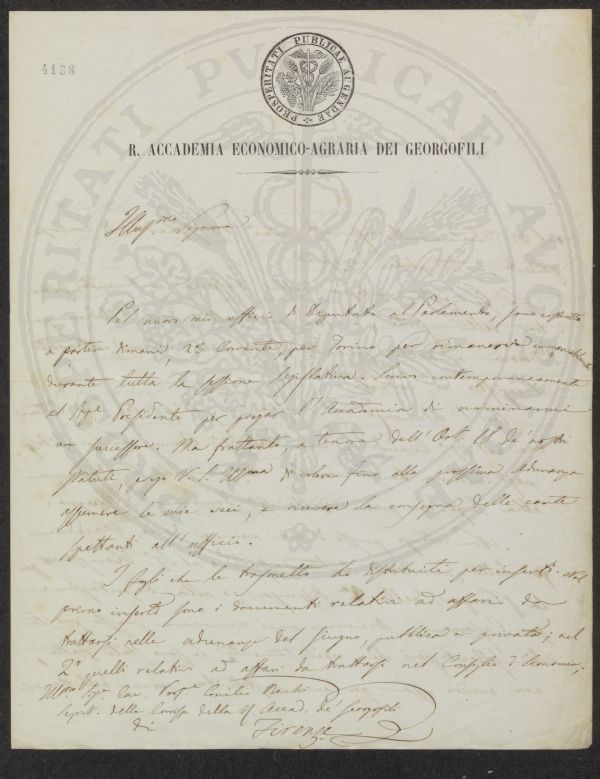 4138
PROSPERITATI PUBLICAE AUGENDAE
R. ACCADEMIA ECONOMICO-AGRARIA DEI GEORGOFILI
Illus.mo Signore
Pel nuovo mio ufficio di Deputato al Parlamento, sono costretto
a partir dimani, 25 Corrente, per Torino per rimanervi
durante tutta la sessione legislativa. Scrivo contemporaneamente
al Sigr. Presidente per pregar l'Accademia di nominarmi
un successore. Ma frattanto, a tenore dell'Art. 18 de' nostri
Statuti, prego V. S. Ill.ma di volere fino alla prossima Adunanza
assumere le mie veci, e ricevere la consegna delle carte
spettanti all'ufficio.
I fogli che le trasmetto ho distribuiti per inserti. Nel
primo inserto sono i documenti relativi ad affari da
trattarsi nelle adunanze del Giugno, pubblica e privata; nel
2º quelli relativi ad affari da trattarsi nel Consiglio d'
Illmo Sigr. Cav. Profre.
Segret. delle Corrisp. della R. Accad. de' Georgofili
di Firenze